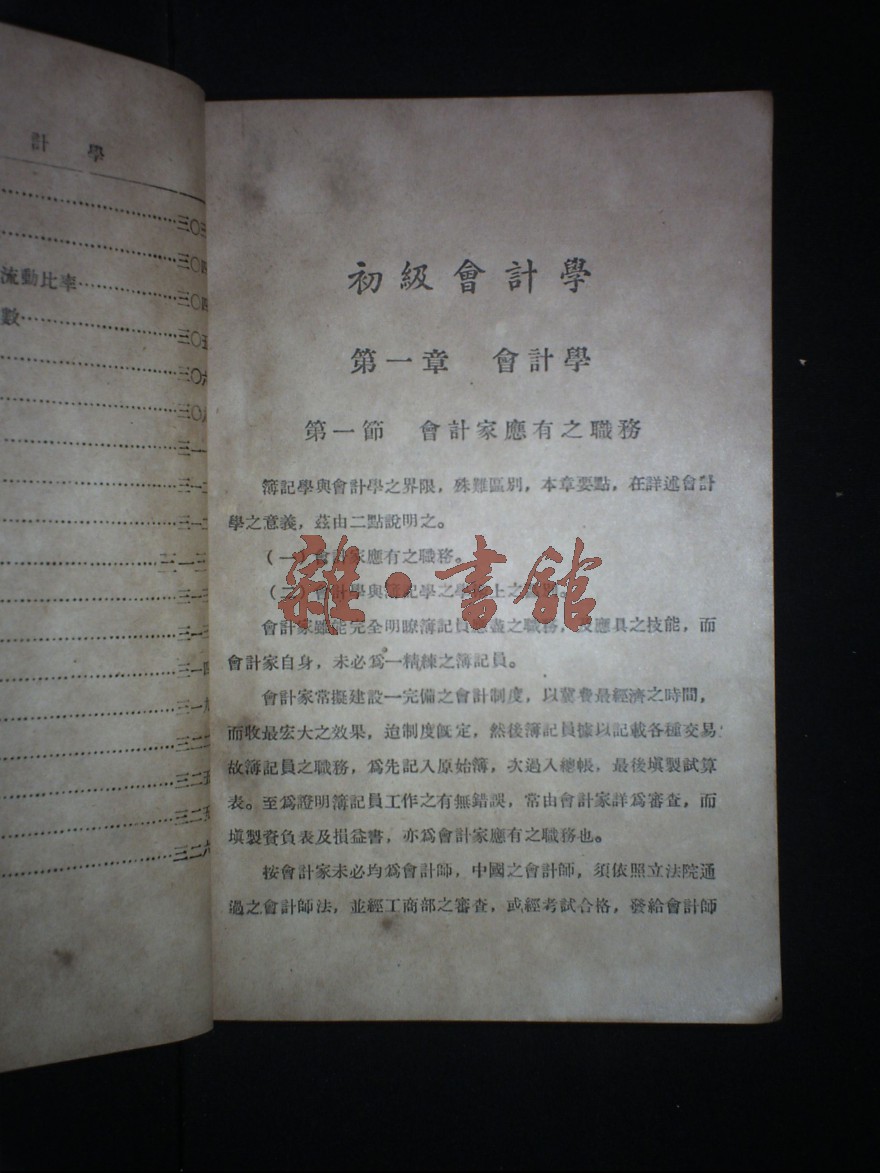 計學
三〇三
三〇四
流動比率 三〇四
數 三〇五
三〇六
三〇八
三一一
三一二
三一二
三一三
三一三
三一三
三一四
三一九
三二二
三二五
三二五
三二六
初級會計學
第一章 會計學
第一節 會計家應有之職務
簿記學與會計學之界限，殊難區別，本章要點，在詳述會計
學之意義，茲由二點說明之。
（一）會計家應有之職務。
（二）會計學與簿記學之學上之區別。
會計家雖能完全明瞭簿記員應盡之職務，及應具之技能，而
會計家自身，未必爲一精練之簿記員。
會計家常擬建設一完備之會計制度，以冀費最經濟之時間，
而收最宏大之效果，迨制度旣定，然後簿記員據以記載各種交易
故簿記員之職務，爲先記入原始簿，次過入總帳，最後塡製試算
表。至爲證明簿記員工作之有無錯誤，常由會計家詳爲審查，而
塡製資負表及損益書，亦爲會計家應有之職務也。
按會計家未必均爲會計師，中國之會計師，須依照立法院通
過之會計師法，並經工商部之審查，或經考試合格，發給會計師
雜·書館